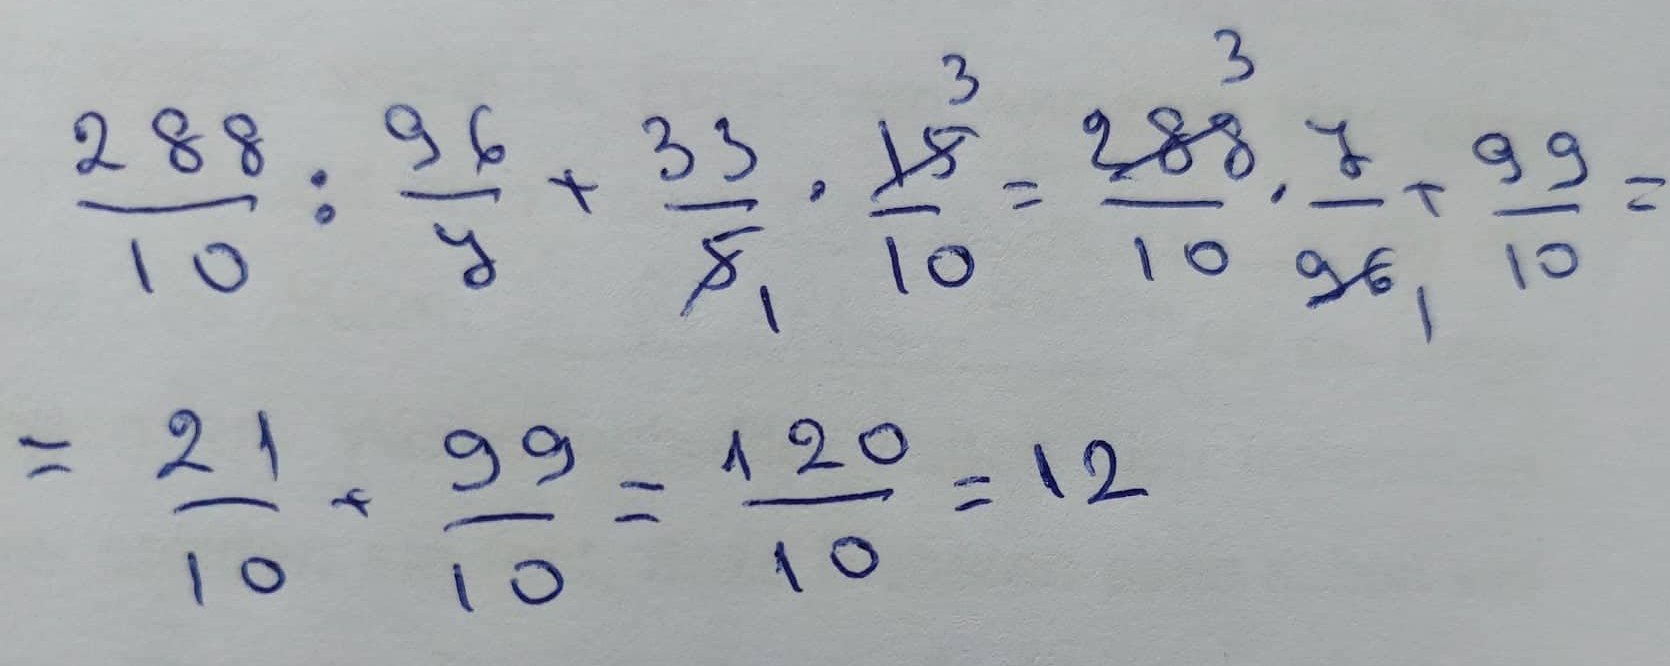 288/10 : 96/7 + 33/5 1 · 15 3/10 = 288 3/10 · 7/96 1 + 99/10 =
= 21/10 + 99/10 = 120/10 = 12